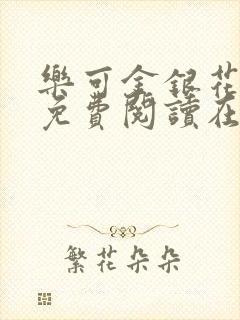 樂可金銀花
免費閱讀在
繁花朵朵